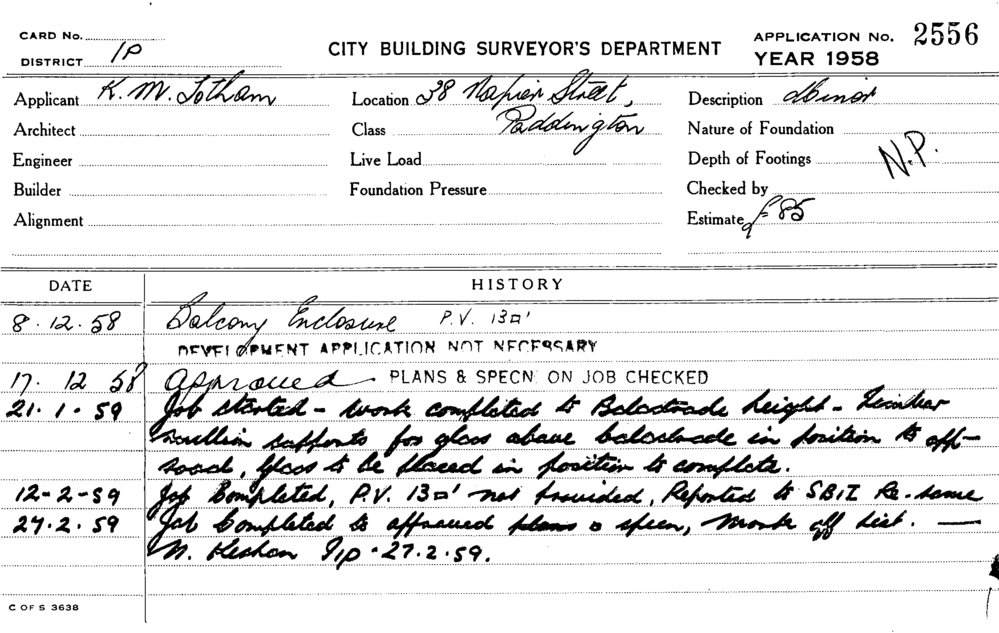 CARD No.
DISTRICT 1P
CITY BUILDING SURVEYOR'S DEPARTMENT
APPLICATION No. 2556
YEAR 1958
Applicant K. M. Totham
Location 38 Napier Street,
Description Minor
Architect
Class Paddington
Nature of Foundation
Engineer
Live Load
Depth of Footings
N.P.
Builder
Foundation Pressure
Checked by
Alignment
Estimate £85
DATE HISTORY
8.12.58 Balcony Enclosure P.V. 13□'
DEVELOPMENT APPLICATION NOT NECESSARY
17. 12 58 Approved. PLANS & SPECN. ON JOB CHECKED
21.1.59 Job started - work completed to Balustrade height - Timber
mullion supports for glass above balustrade in position to off-
road, Glass to be placed in position to complete.
12-2-59 Job Completed, P.V. 13□' not provided, Reported to SBI Re-same
27.2.59 Job Completed to approved plans & specn, Mark off List. —
27.2.59.
C OF S 3638